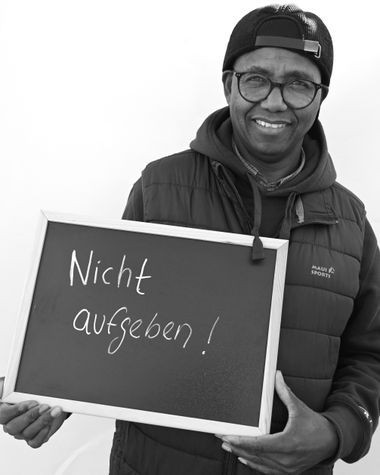 Nicht
aufgeben!
MAUI
SPORTS